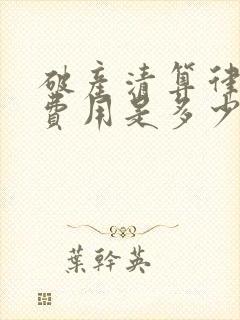 破产清算律
费用是多少
葉幹英